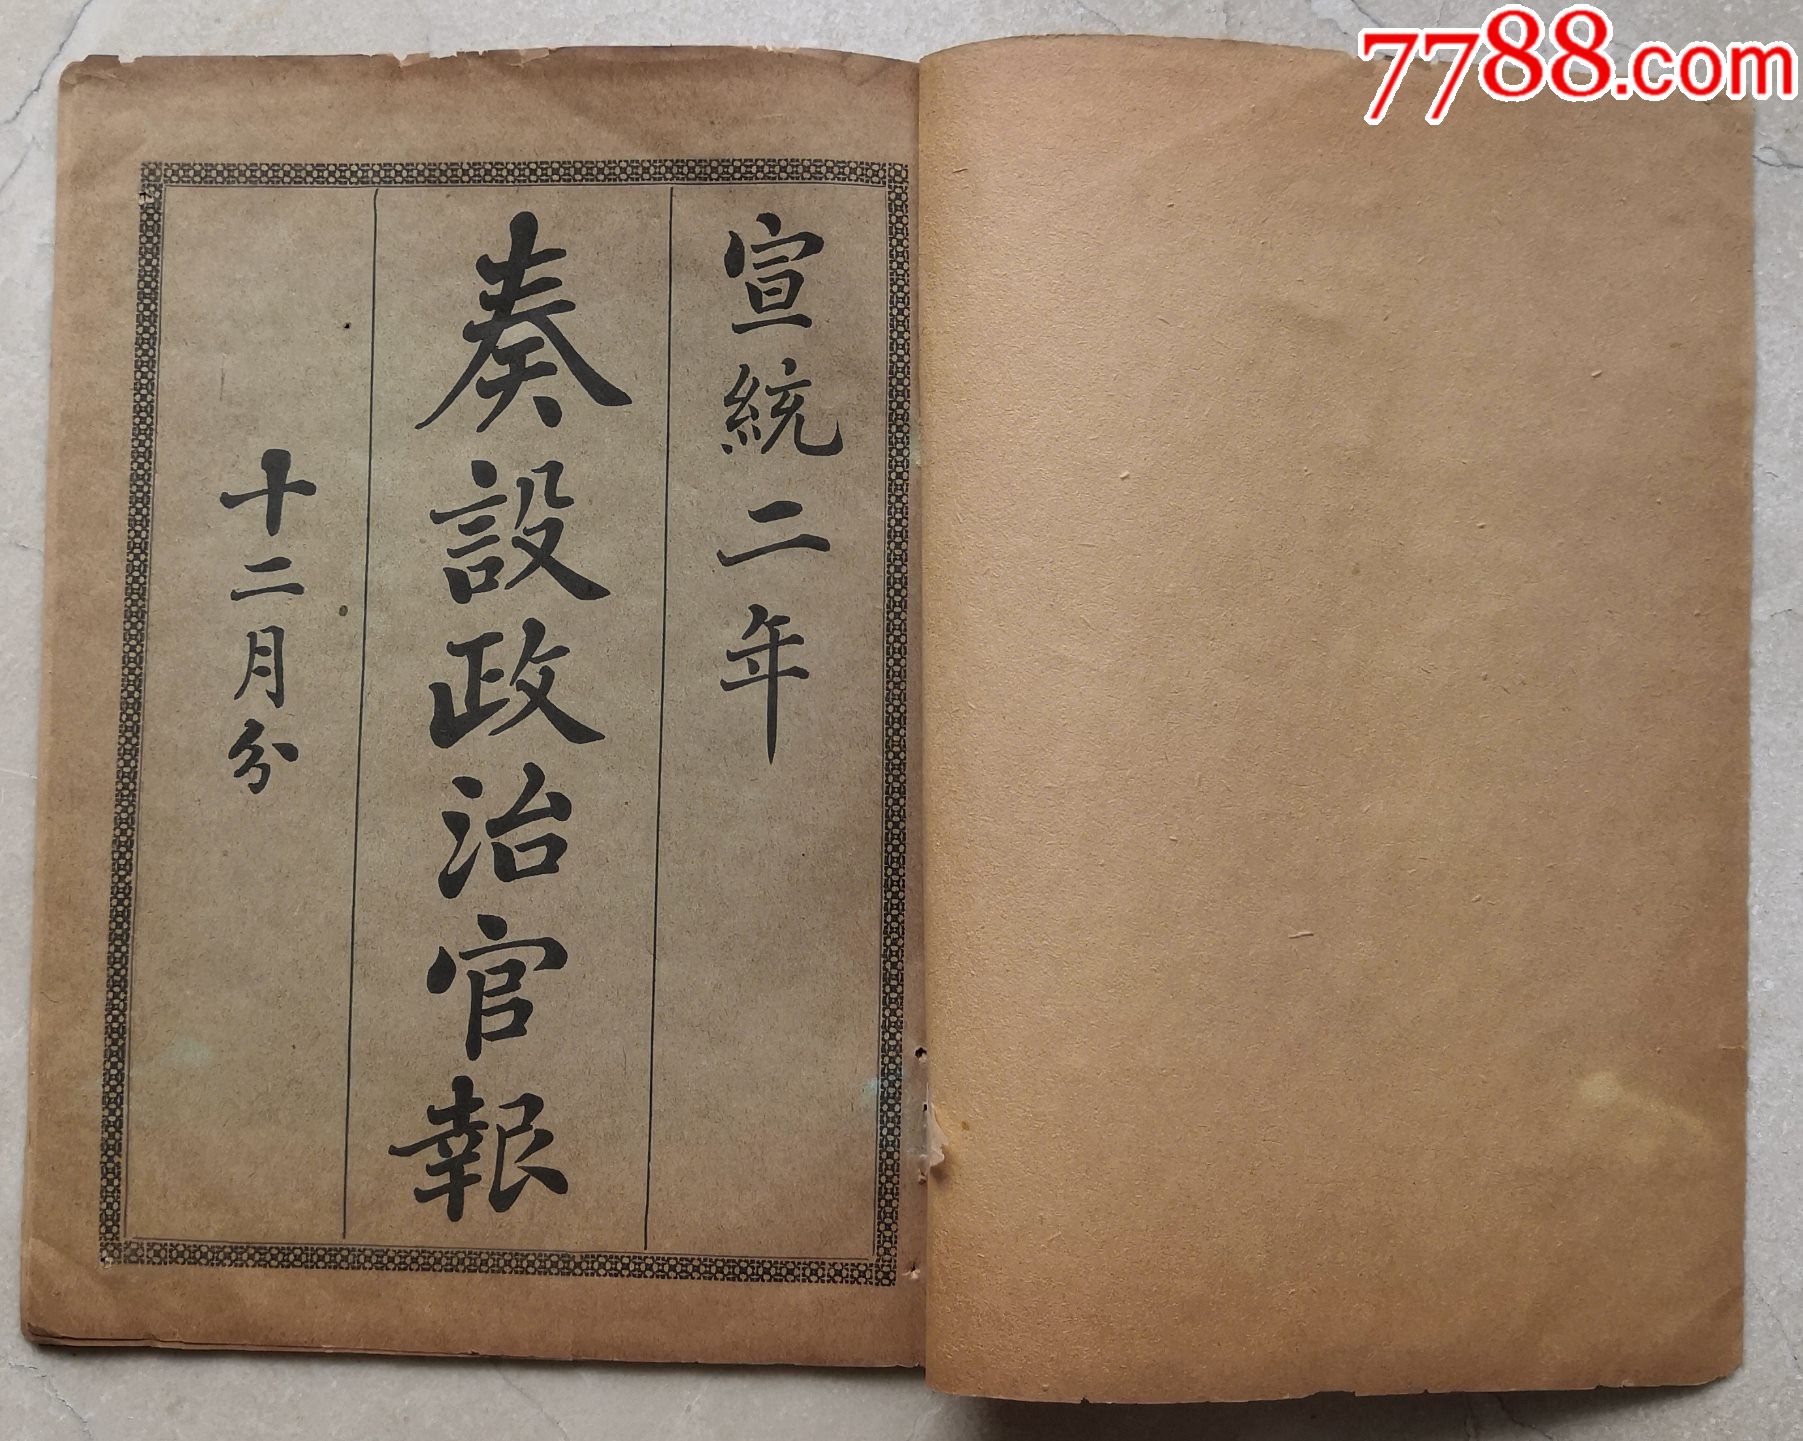 宣統二年
奏設政治官報
十二月分
7788.com